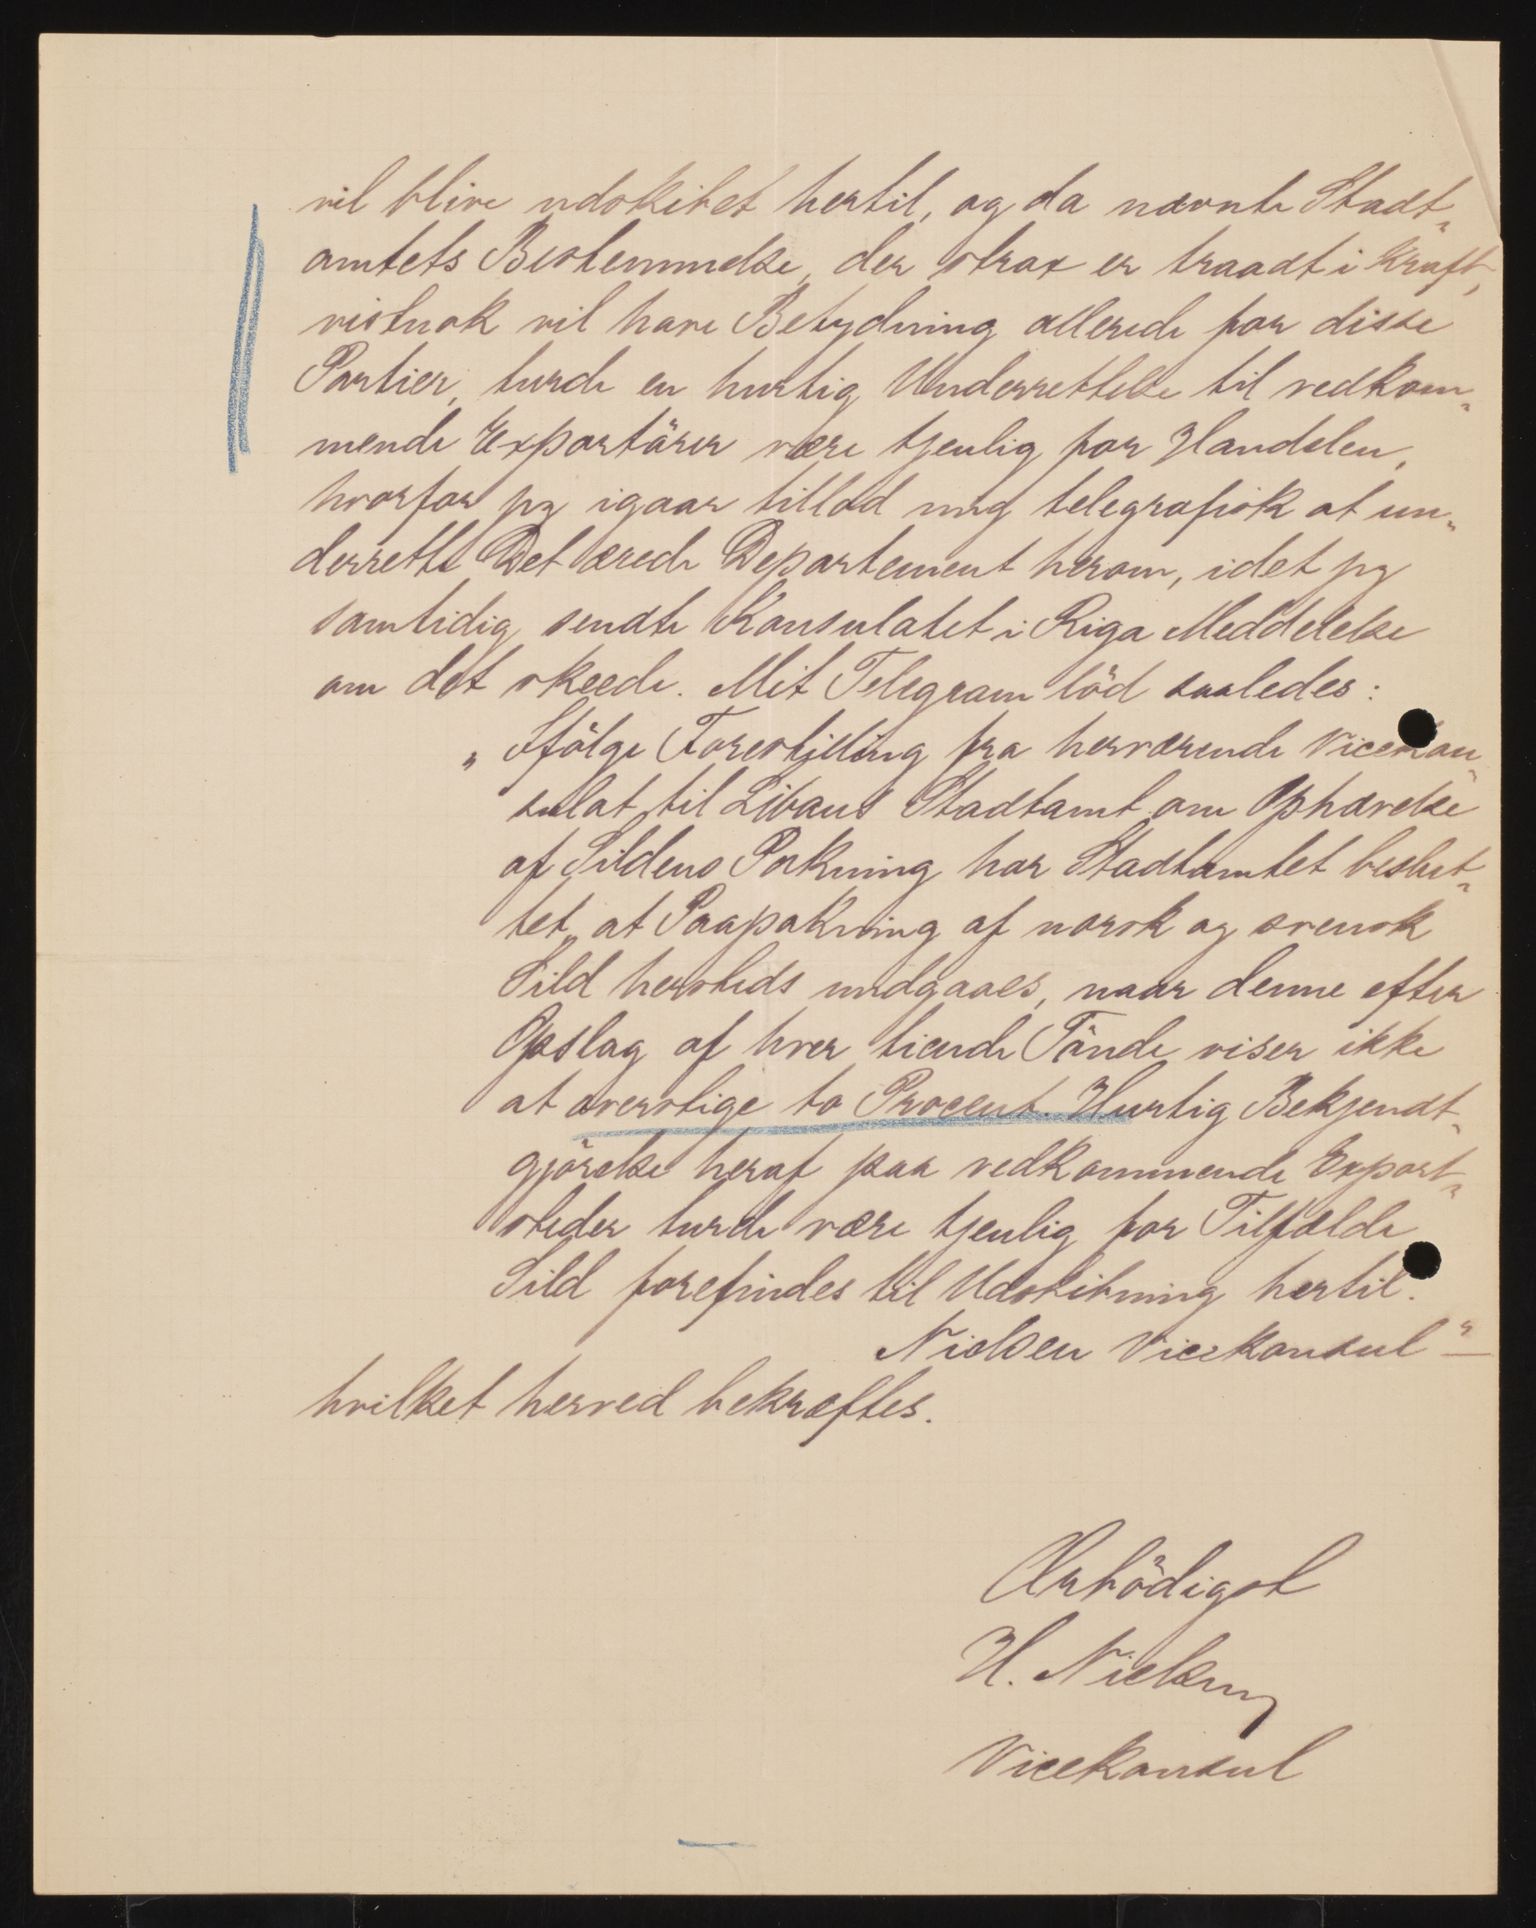 vil blive udskibet hertil, og da nævnte Stadt„
amtets Bestemmelse, der strax er traadt i Kraft,
vistnok vil have Betydning allerede for disse
Partier, turde en hurtig Underrettelse til vedkom„
mende Exportører være tjenlig for Handelen,
hvorfor jeg igaar tillod mig telegrafisk at un„
derrette Det ærede Departement herom, idet jeg
samtidig sendte Konsulatet i Riga Meddelelse
om det skeede. Mit Telegram löd saaledes:
„Ifölge Forestilling fra herværende Vicekon„
sulat til Libaus Stadtamt om Ophævelse
af Sildens Pakning har Stadtamtet beslut„
tet, at Paapakning af norsk og svensk
Sild hersteds undgaaes, naar denne efter
Opslag af hver tiende Tönde viser ikke
at overstige to Procent. Hurtig Bekjendt„
gjörelse heraf paa vedkommende Export„
steder turde være tjenlig for Tilfælde
Sild forefindes til Udskibning hertil.
Nielsen Vicekonsul“
hvilket herved bekræftes.
Ærbödigst
H. Nielsen
Vicekonsul